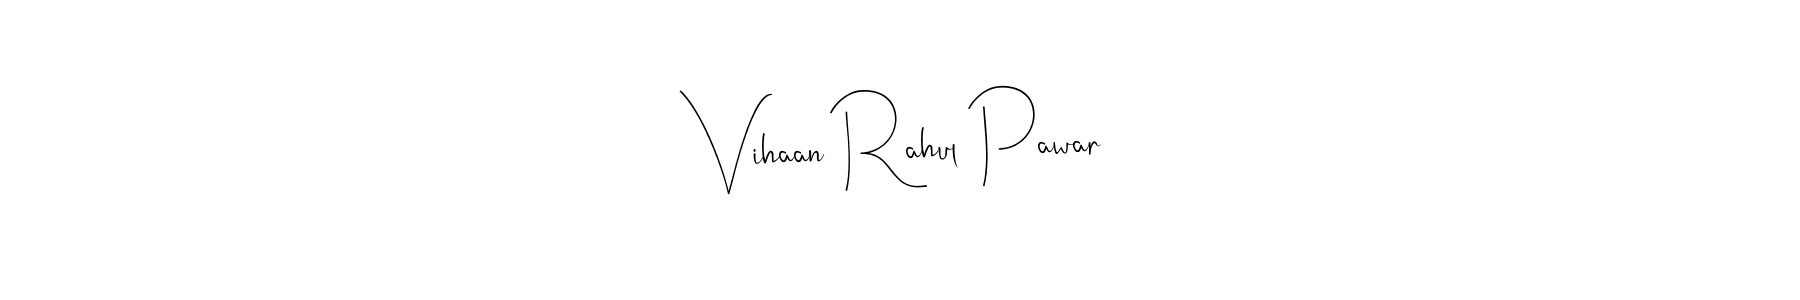 Vihaan Rahul Pawar